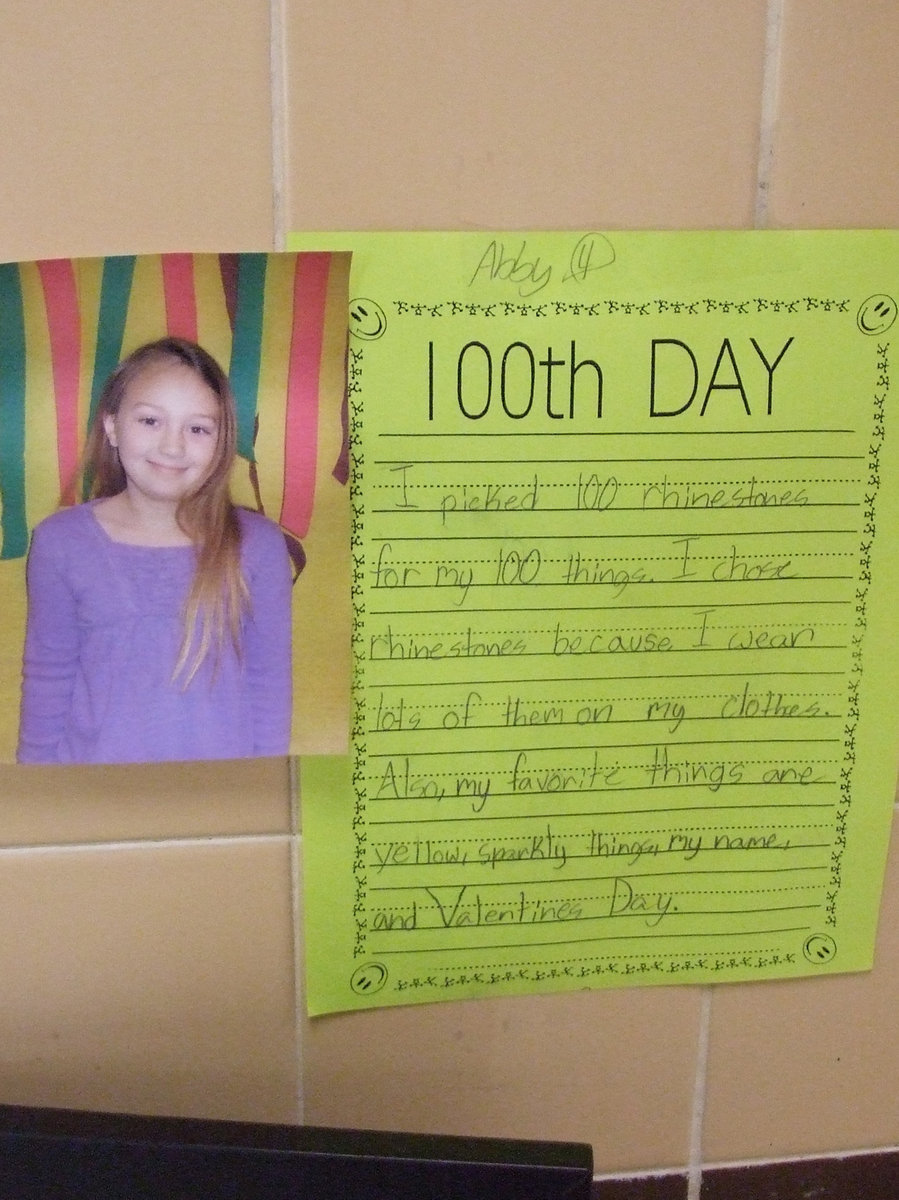 Abby 4
100th DAY
I picked 100 rhinestones
for my 100 things. I chose
rhinestones because I wear
lots of them on my clothes.
Also, my favorite things are
yellow, sparkly things, my name,
and Valentines Day.